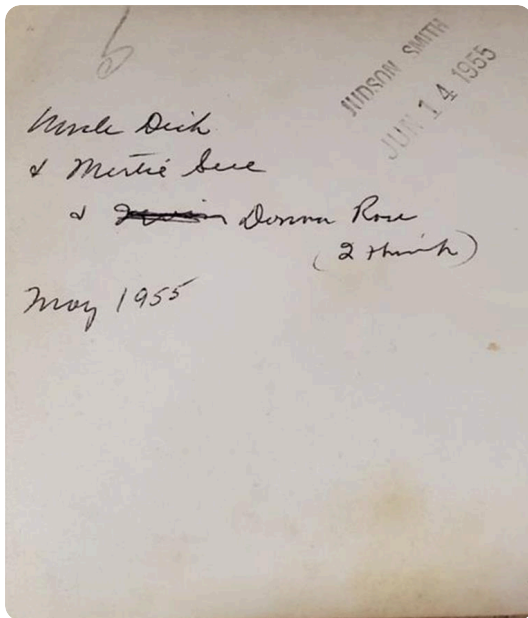 6
JUDSON SMITH
JUN 14 1955
Uncle Dick
& Mertie Sue
& Donna Rose
(I think)
May 1955